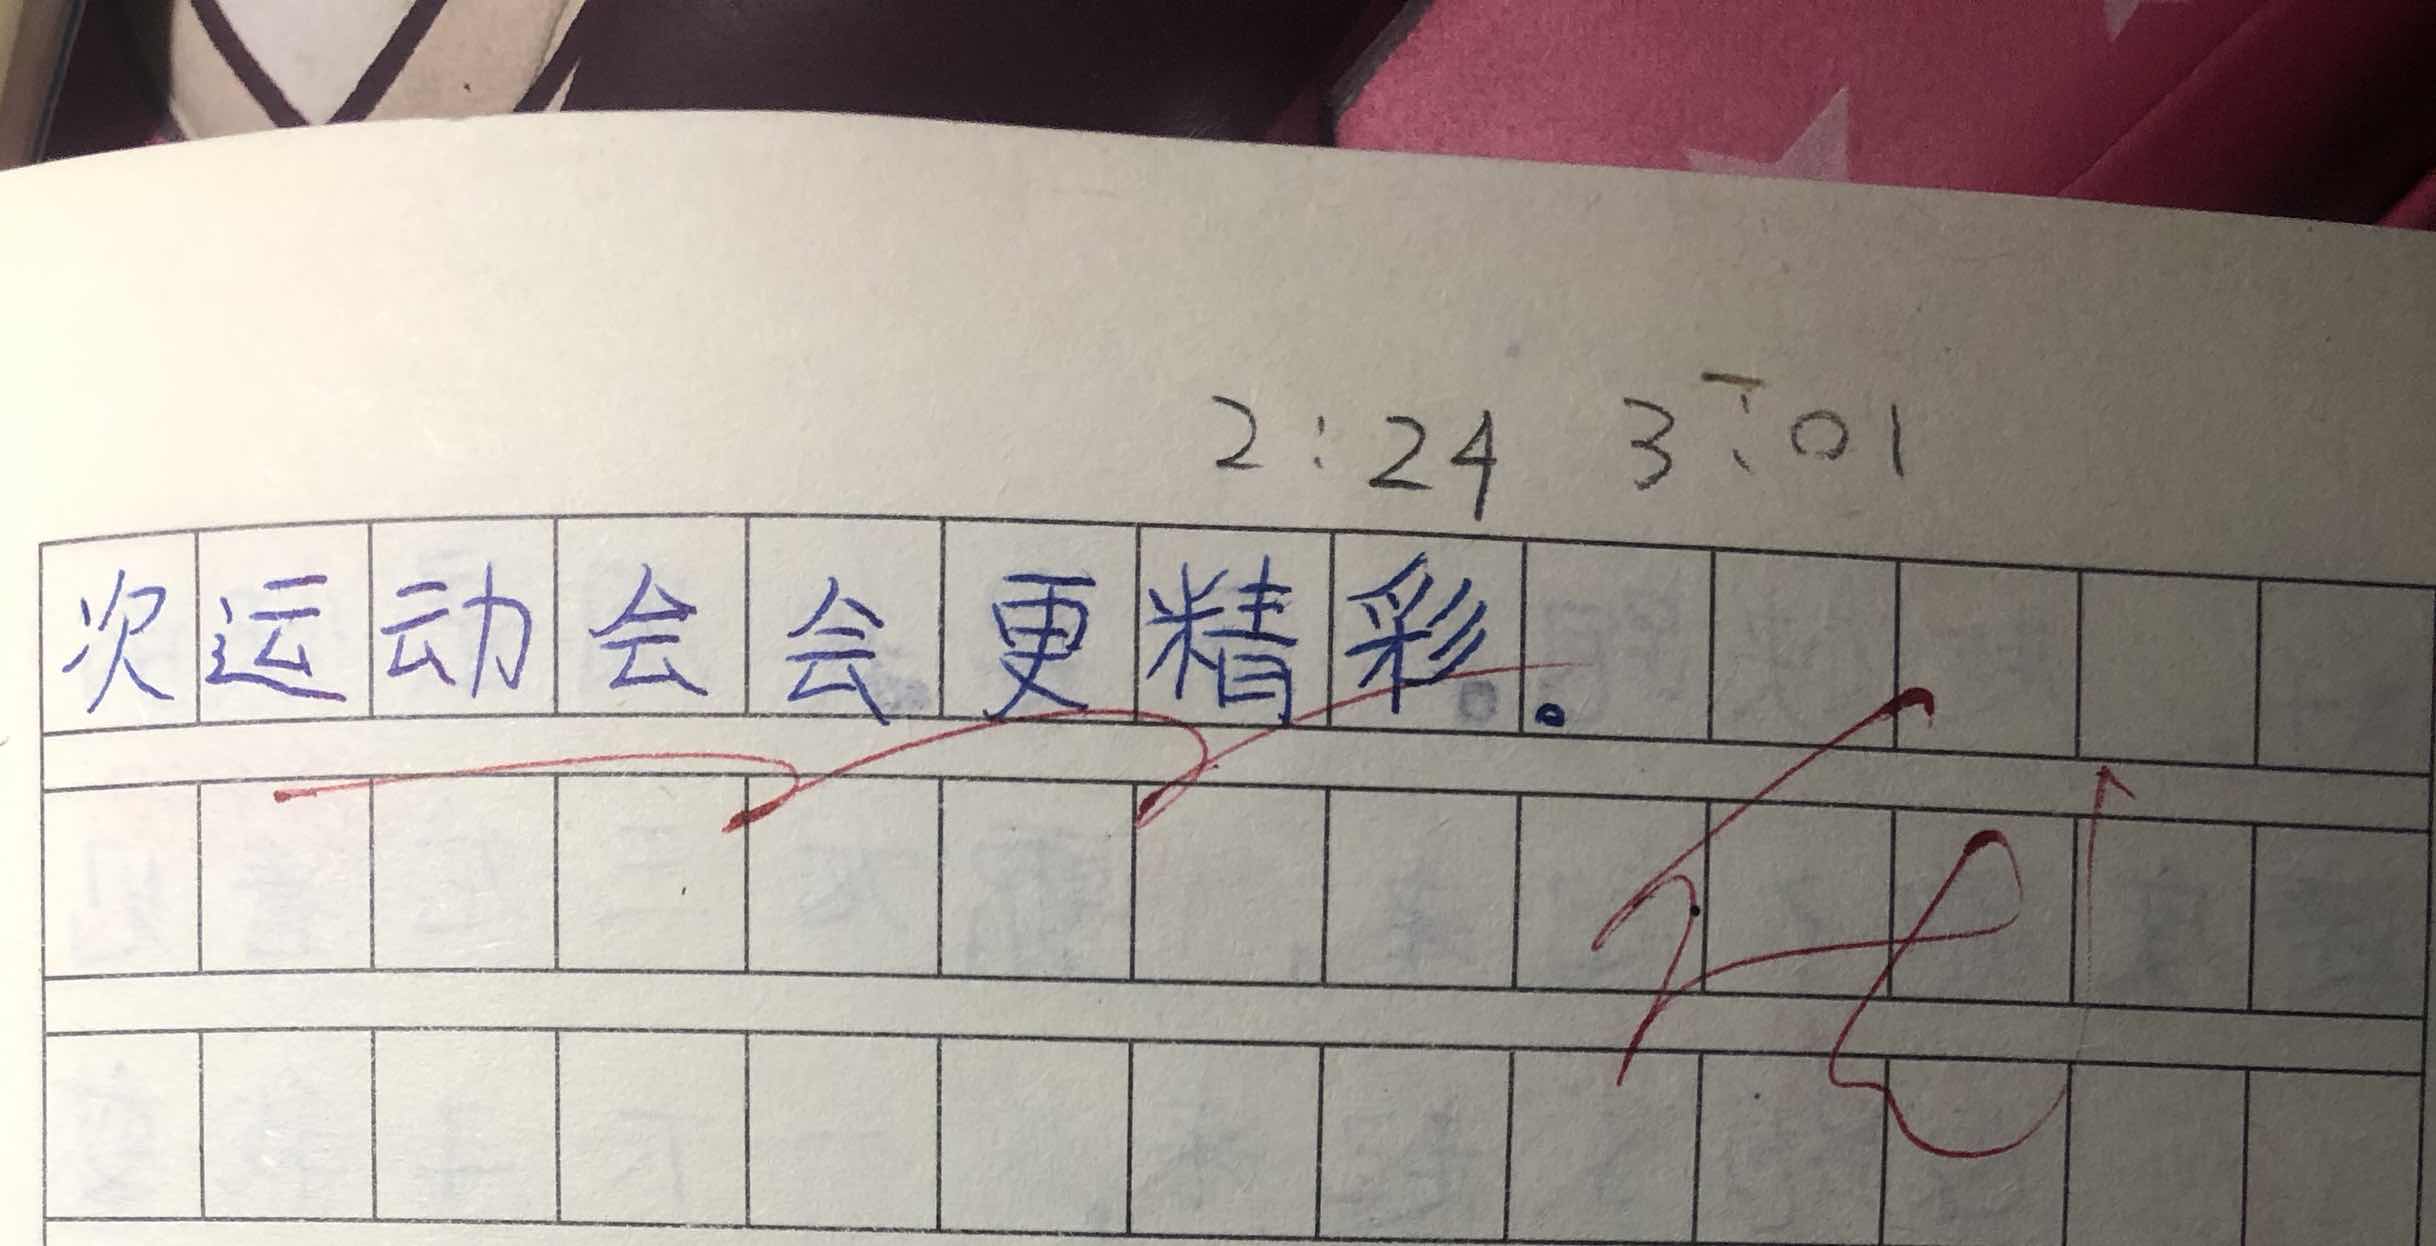 2:24 3:01
次运动会会更精彩.